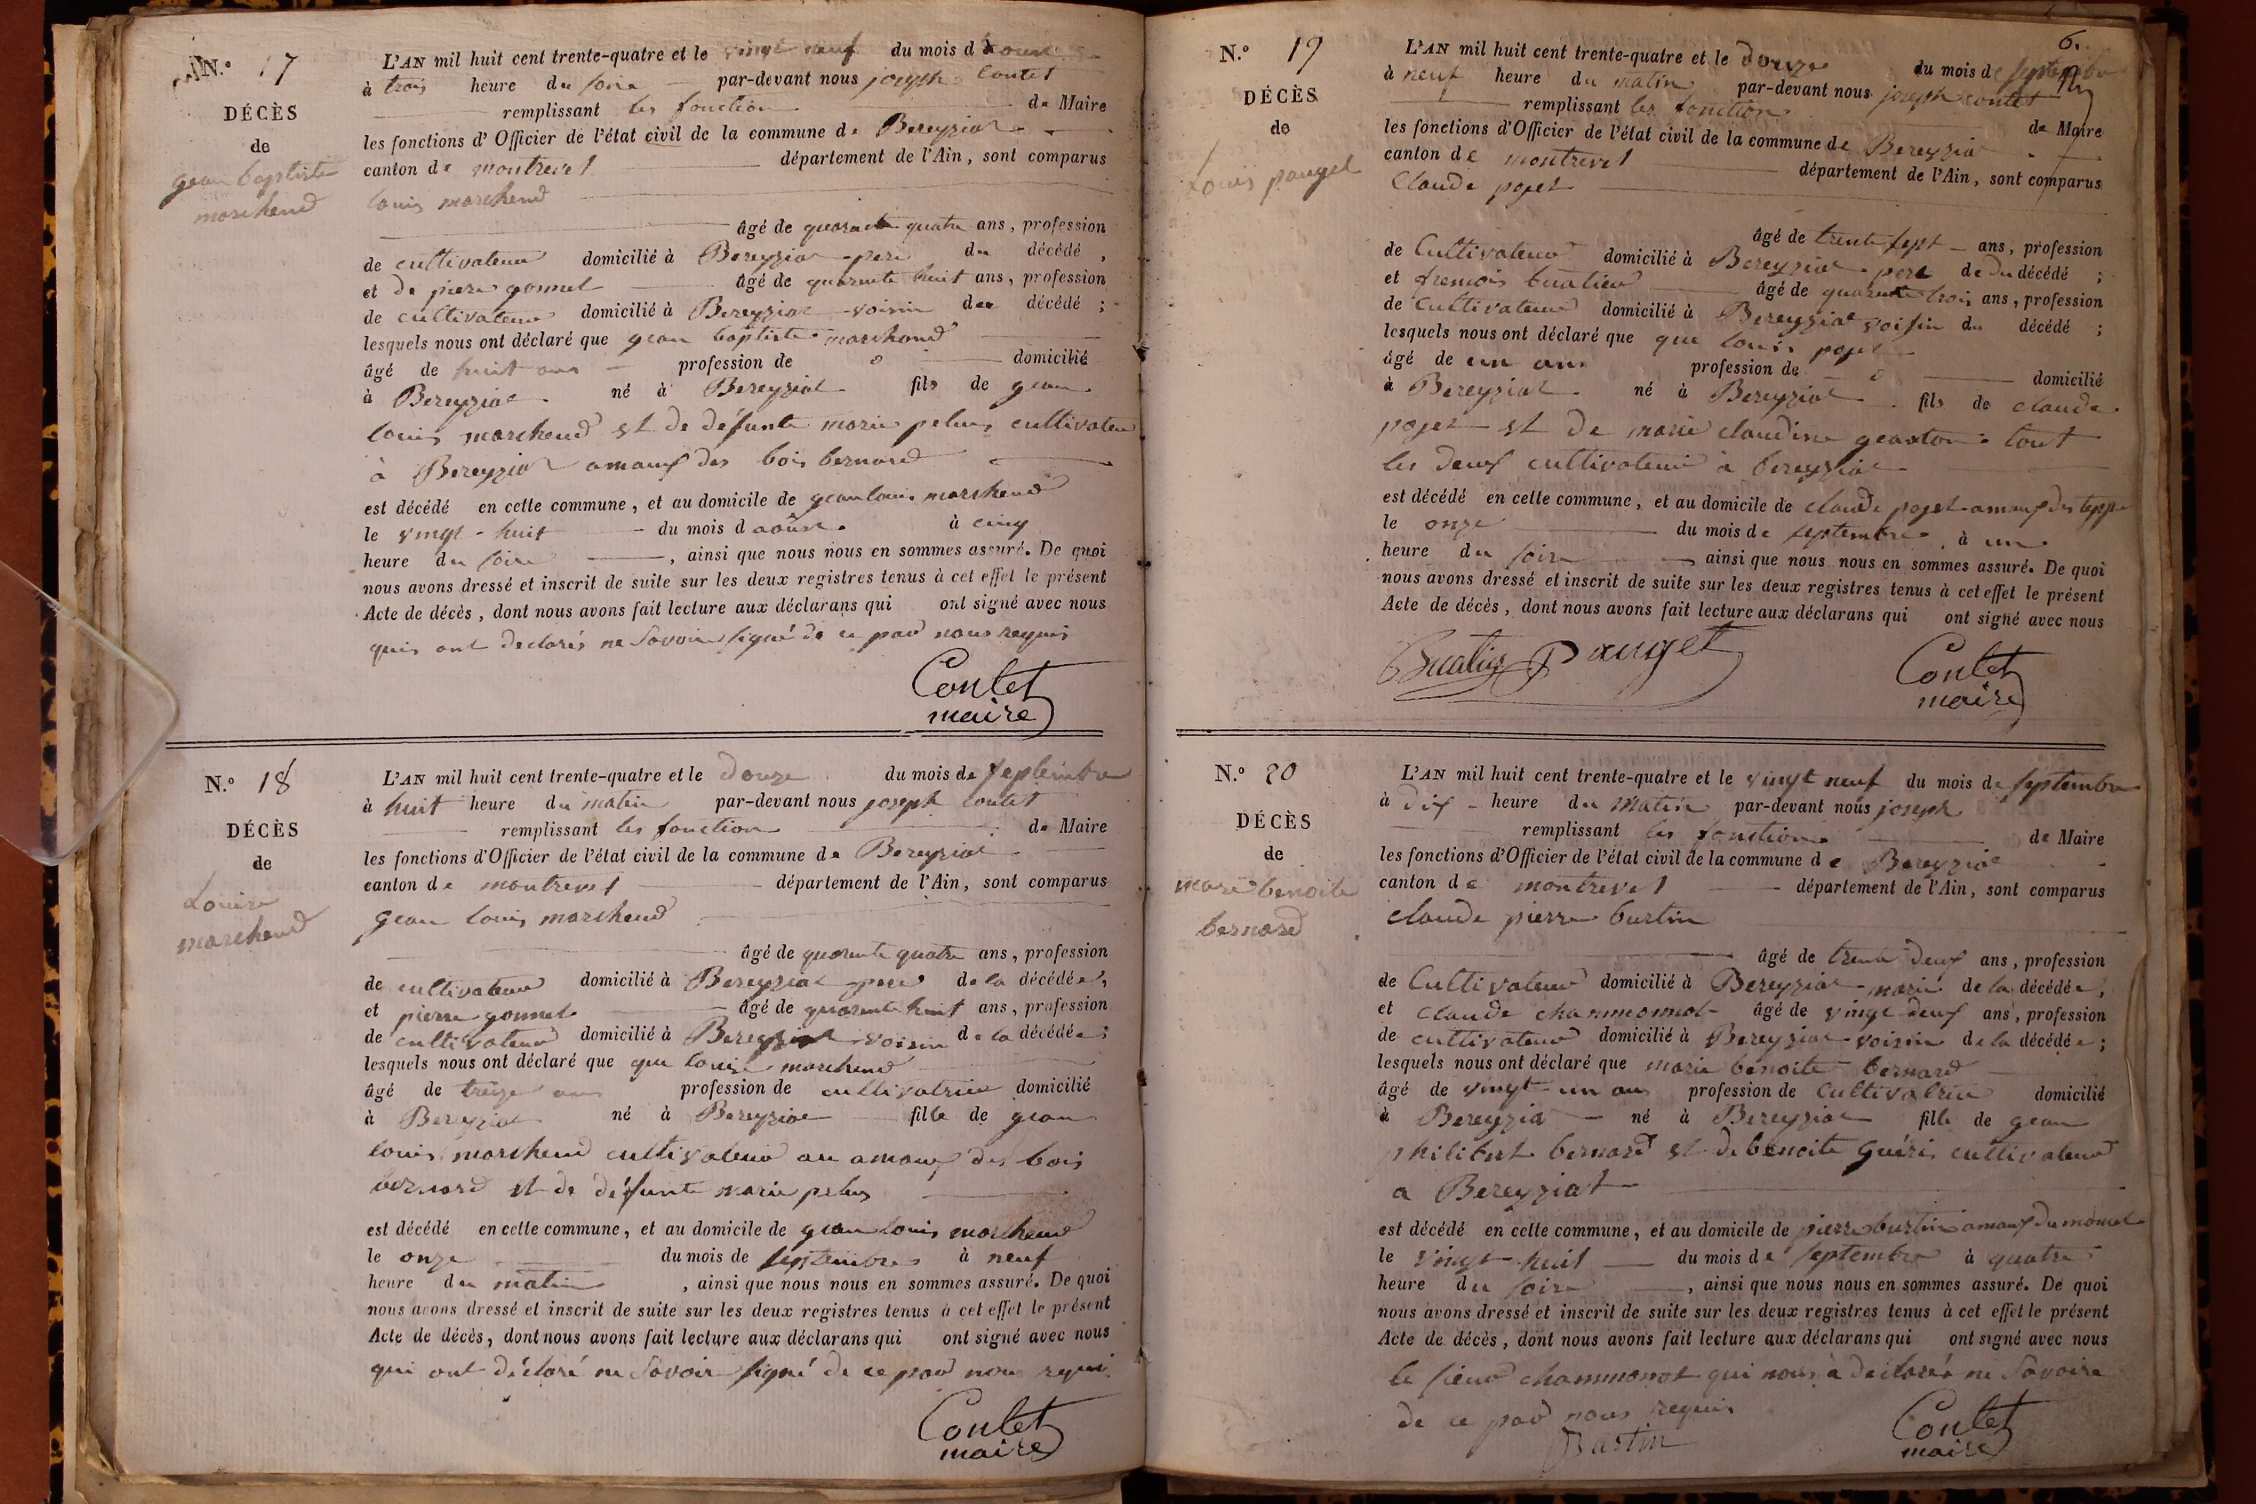 N.° 17
DÉCÈS
de
gean baptiste
marchend
L'AN mil huit cent trente-quatre et le vingt neuf du mois d'aoust
à trois heure du soire par-devant nous joseph Contet
remplissant les fonction de Maire
les fonctions d'Officier de l'état civil de la commune de Bereyziat
canton de montrevel département de l'Ain, sont comparus
louis marchend
âgé de quarante quatre ans, profession
de cultivateur domicilié à Bereyziat pere du décédé,
et de piere gonnet âgé de quarante huit ans, profession
de cultivateur domicilié à Bereyziat voisin du décédé;
lesquels nous ont déclaré que gean baptiste marchend
âgé de huit ans profession de domicilié
à Bereyziat né à Bereyziat fils de gean
louis marchend et de défunte marie pelus cultivateur
à Bereyziat amauf des bois bernard
est décédé en cette commune, et au domicile de gean louis marchend
le vingt-huit du mois d aoûst à cinq
heure du soire, ainsi que nous nous en sommes assuré. De quoi
nous avons dressé et inscrit de suite sur les deux registres tenus à cet effet le présent
Acte de décès, dont nous avons fait lecture aux déclarans qui ont signé avec nous
quis ont declarés ne savoir signé de ce par nous requis
Contet
maire
N.° 18
DÉCÈS
de
Louise
marchend
L'AN mil huit cent trente-quatre et le douze du mois de septembre
à huit heure du matin par-devant nous joseph contet
remplissant les fonction de Maire
les fonctions d'Officier de l'état civil de la commune de Bereyziat
canton de montrevel département de l'Ain, sont comparus
gean louis marchend
âgé de quarente quatre ans, profession
de cultivateur domicilié à Bereyziat pere de la décédée,
et pierre gonnet âgé de quarente huit ans, profession
de cultivateur domicilié à Bereyziat voisin de la décédée;
lesquels nous ont déclaré que que louise marchend
âgé de treize ans profession de cultivatrice domicilié
à Bereyziat né à Bereyziat fille de gean
louis marchend cultivateur au amauf des bois
bernard et de défunte marie pelus
est décédé en cette commune, et au domicile de gean louis marchend
le onze du mois de septembre à neuf
heure du matin, ainsi que nous nous en sommes assuré. De quoi
nous avons dressé et inscrit de suite sur les deux registres tenus à cet effet le présent
Acte de décès, dont nous avons fait lecture aux déclarans qui ont signé avec nous
qui ont déclaré ne savoir signé de ce par nous requi
Contet
maire
6.
N.° 19
DÉCÈS
de
Louis pauget
L'AN mil huit cent trente-quatre et le douze du mois de septembre
à neuf heure du matin par-devant nous joseph contet
remplissant les fonction de Maire
les fonctions d'Officier de l'état civil de la commune de Bereyziat
canton de montrevel département de l'Ain, sont comparus
Claude poget
âgé de trente sept ans, profession
de Cultivateur domicilié à Bereyziat pere de du décédé;
et fremois buatier âgé de quarente trois ans, profession
de cultivateur domicilié à Bereyziat voisin du décédé;
lesquels nous ont déclaré que que louis poget
âgé de un ans profession de domicilié
à Bereyziat né à Bereyziat fils de claude
poget et de marie claudine geanton tout
les deux cultivateur à bereyziat
est décédé en cette commune, et au domicile de claude poget amauf des teppe
le onze du mois de septembre, à un
heure du soire ainsi que nous nous en sommes assuré. De quoi
nous avons dressé et inscrit de suite sur les deux registres tenus à cet effet le présent
Acte de décès, dont nous avons fait lecture aux déclarans qui ont signé avec nous
Buatier Pauget
Contet
maire
N.° 20
DÉCÈS
de
marie benoite
bernard
L'AN mil huit cent trente-quatre et le vingt neuf du mois de septembre
à dix heure du matin par-devant nous joseph
remplissant les fonctions de Maire
les fonctions d'Officier de l'état civil de la commune de Bereyziat
canton de montrevel département de l'Ain, sont comparus
claude pierre burtin
âgé de trente deux ans, profession
de Cultivateur domicilié à Bereyziat marie de la décédée,
et claude chammonot âgé de vingt deux ans, profession
de cultivateur domicilié à Bereyziat voisin de la décédée;
lesquels nous ont déclaré que marie benoite bernard
âgé de vingt un ans profession de Cultivatrice domicilié
à Bereyziat né à Bereyziat fille de gean
philibert bernard et de benoite guéris cultivateur
a Bereyziat
est décédé en cette commune, et au domicile de pierre burtin amauf du momet
le vingt huit du mois de septembre à quatre
heure du soire, ainsi que nous nous en sommes assuré. De quoi
nous avons dressé et inscrit de suite sur les deux registres tenus à cet effet le présent
Acte de décès, dont nous avons fait lecture aux déclarans qui ont signé avec nous
le sieur chammonot qui nous à déclarés ne savoire
de ce par nous requis
Burtin
Contet
maire